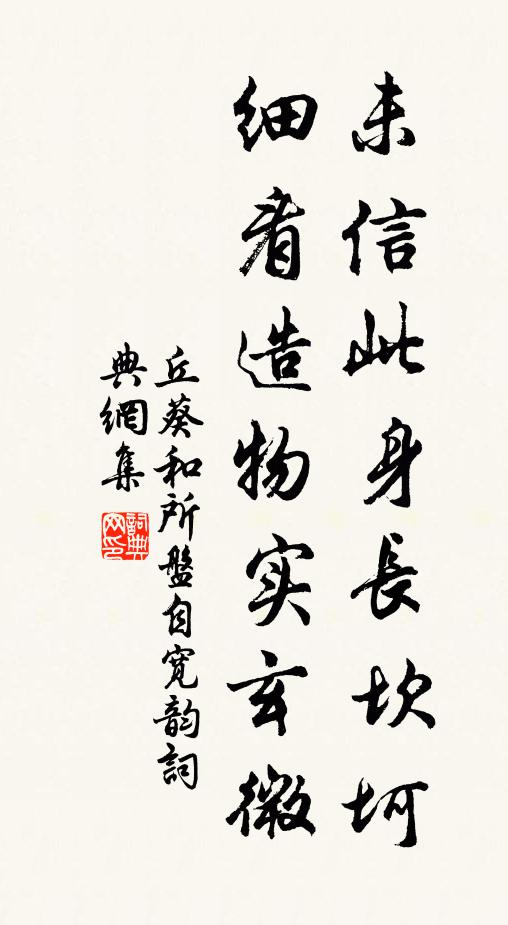 未信此身長坎坷
细看造物实玄微
丘葵和所盤自寛韵詞
典網集
詞典
网印